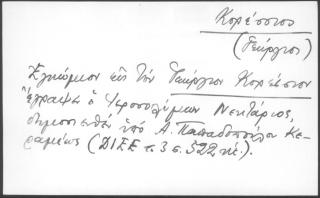 Κορέσσιος
(Γεώργιος)
Ἐγκώμιον εἰς τὸν Γεώργιον Κορέσσιον
ἔγραψεν ὁ Ἱεροσολύμων Νεκτάριος,
δημοσιευθὲν ὑπὸ Α. Παπαδοπούλου Κε-
ραμέως (ΔΙΕΕ τ. 3 σ. 522 κἑ.).